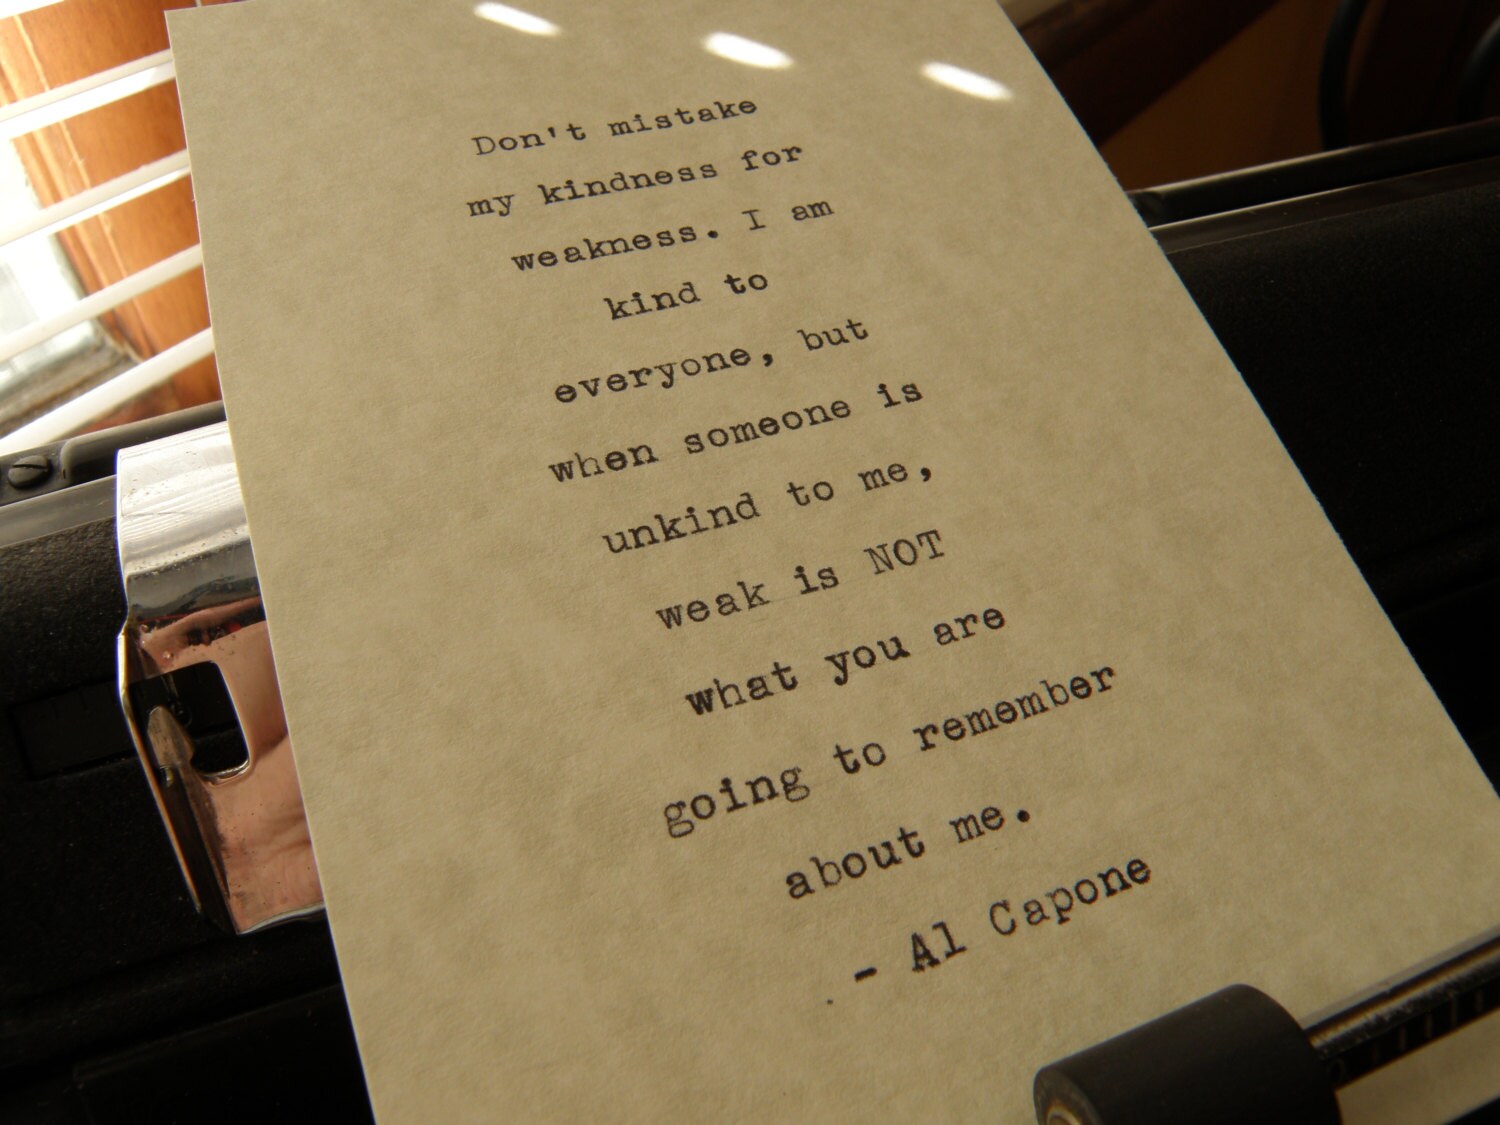 Don't mistake
my kindness for
weakness. I am
kind to
everyone, but
when someone is
unkind to me,
weak is NOT
what you are
going to remember
about me.
- Al Capone